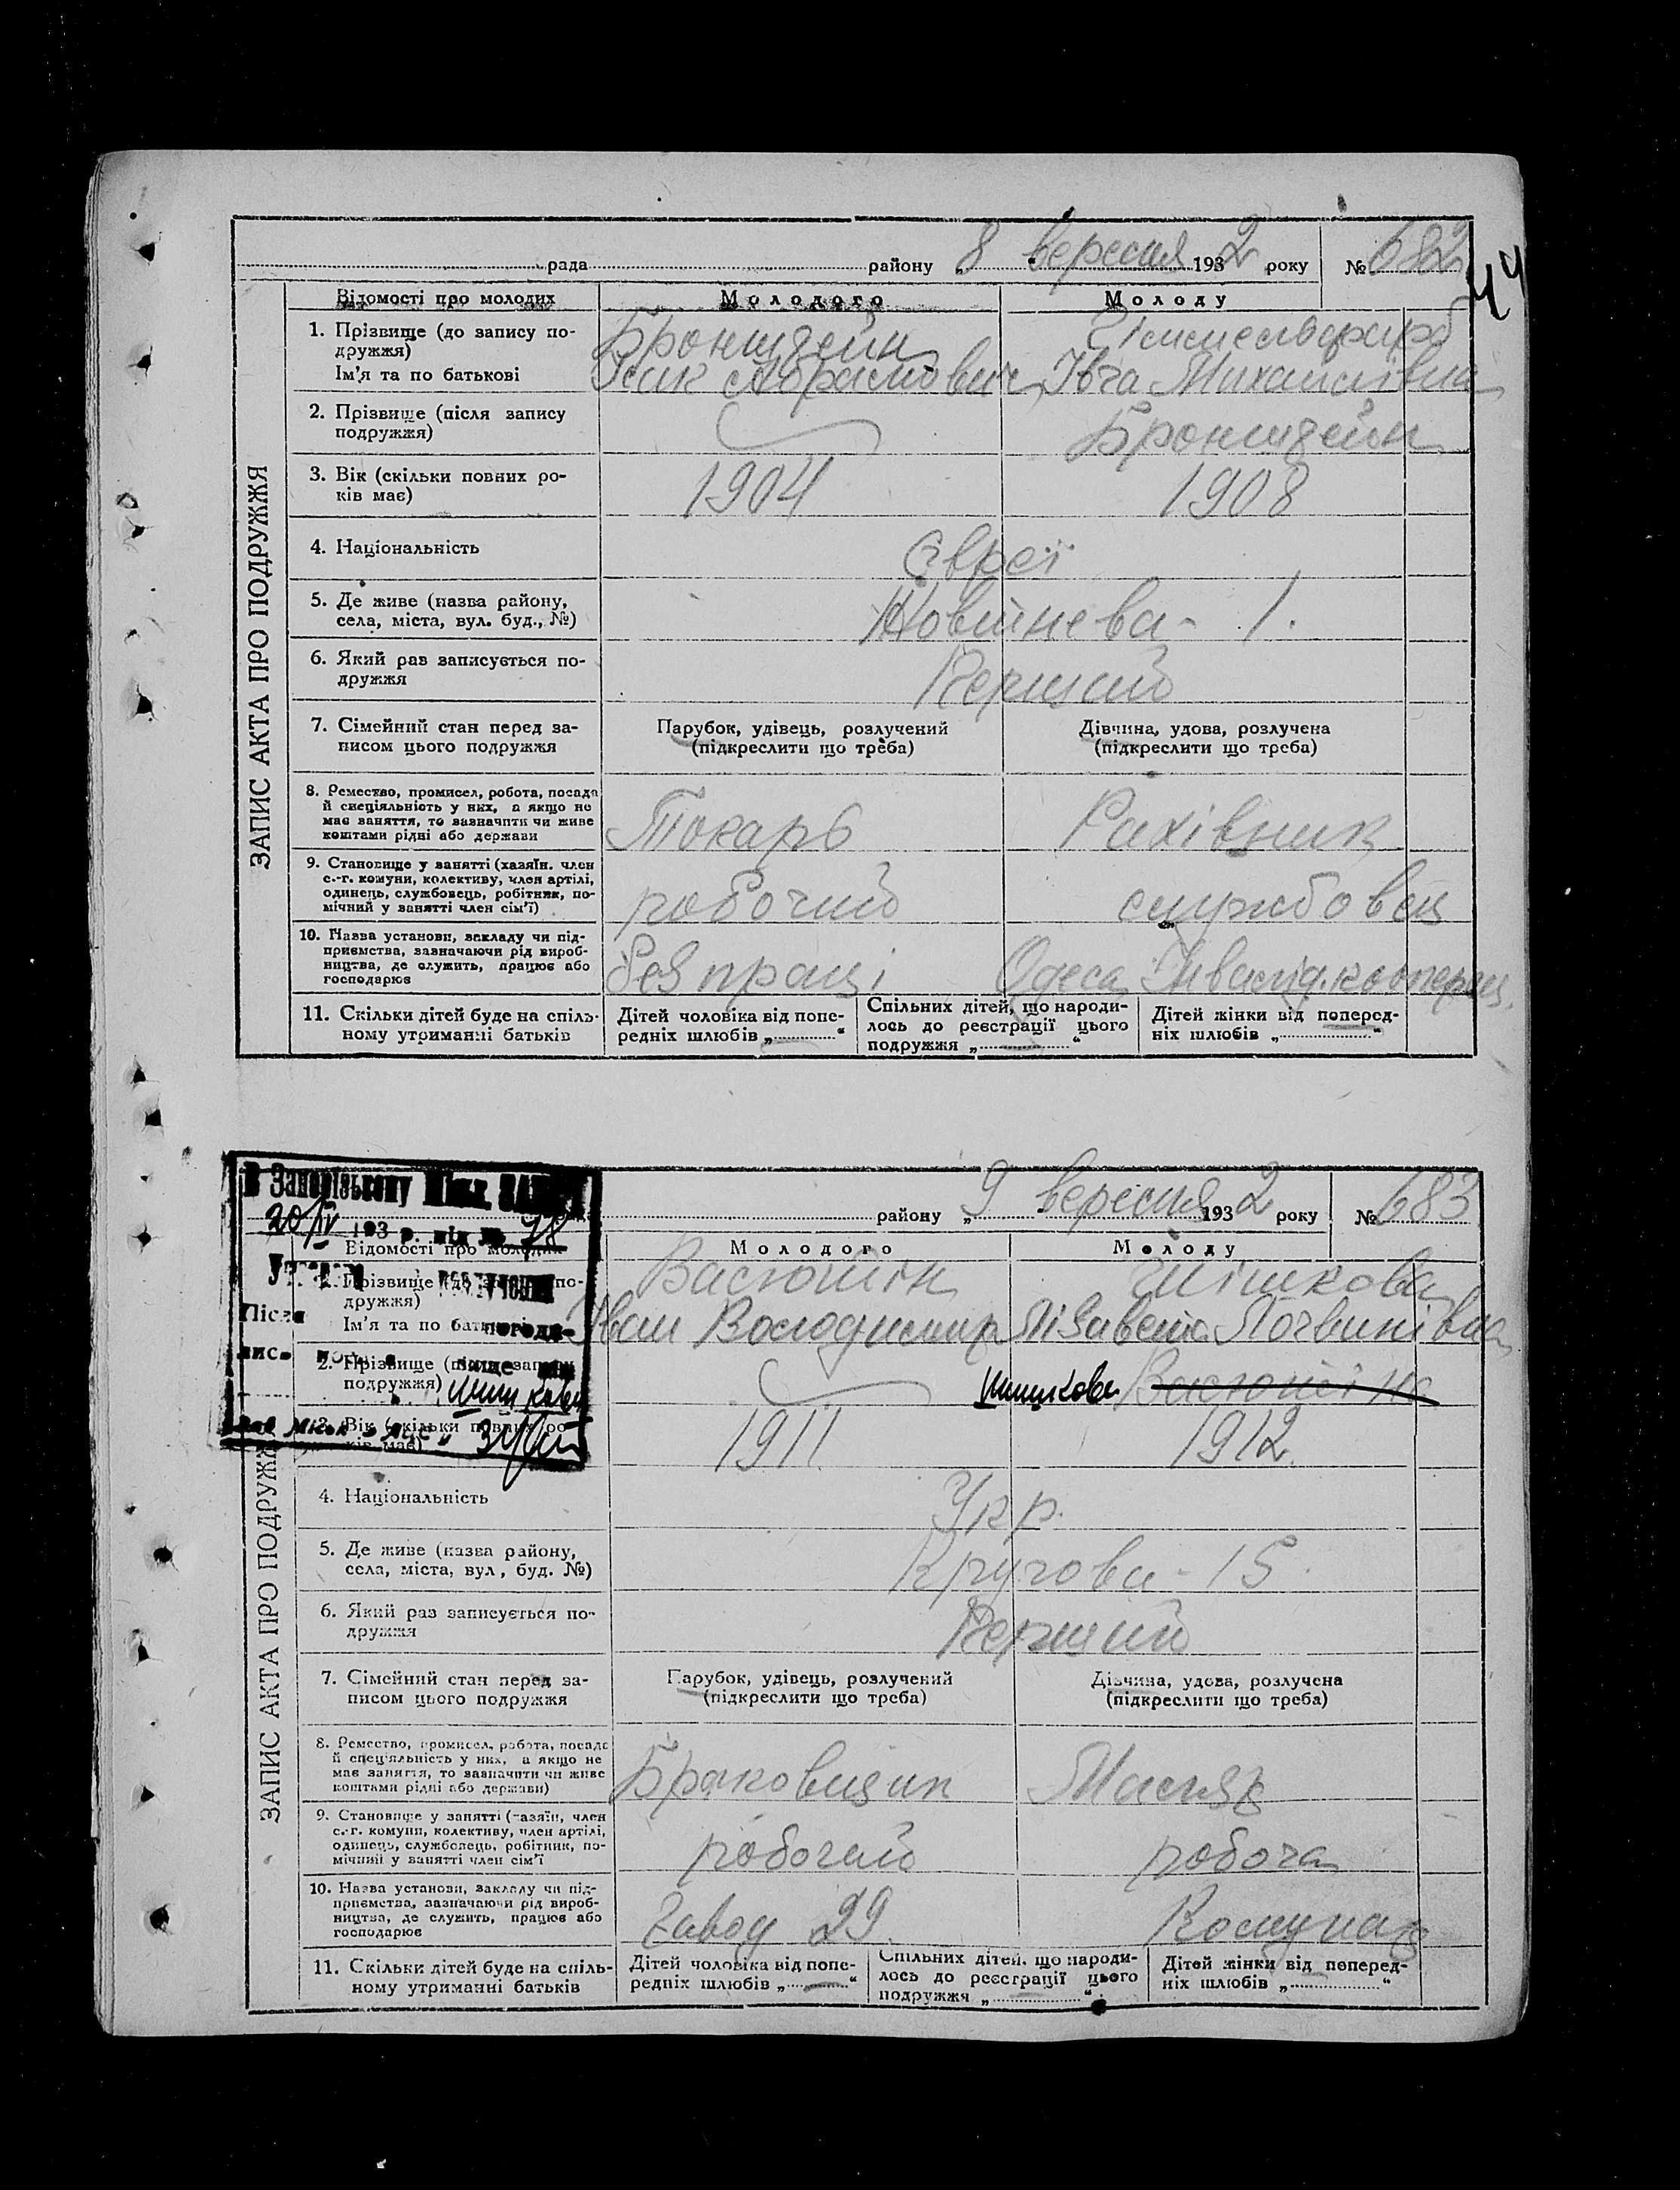 рада району „8" вересня 1932 року № 682
44
ЗАПИС АКТА ПРО ПОДРУЖЖЯ
Відомості про молодих Молодого Молоду
1. Прізвище (до запису по-
дружжя)
Бронштейн
Ім'я та по батькові
Ісак Абрамович Михайлівна
2. Прізвище (після запису
подружжя)
Бронштейн
3. Вік (скільки повних ро-
ків має)
1904 1908
4. Національність
Євреї
5. Де живе (назва району,
села, міста, вул. буд., №)
1.
6. Який раз записується по-
дружжя
Перший
7. Сімейний стан перед за-
писом цього подружжя
Парубок, удівець, розлучений
(підкреслити що треба)
Дівчина, удова, розлучена
(підкреслити що треба)
8. Ремество, промисел, робота, посада
й спеціяльність у них, а якщо не
має заняття, то зазначити чи живе
коштами рідні або держави
Токарь Рахівник
9. Становище у занятті (хазяїн. член
с.-г. комуни, колективу, член артілі,
одинець, службовець, робітник, по-
мічний у занятті член сім'ї)
робочий службовец
10. Назва установи, закладу чи під-
приємства, зазначаючи рід вироб-
ництва, де служить, працює або
господарює
без праці Одеса Інвалід.коопер
11. Скільки дітей буде на спіль-
ному утриманні батьків
Дітей чоловіка від попе-
редніх шлюбів „ — "
Спільних дітей, що народи-
лось до реєстрації цього
подружжя „ — "
Дітей жінки від поперед-
ніх шлюбів „ "
В Запорізькому
20/IV 193 р. під № 78
Після
Шишкова
району „9 вересня 1932 року № 683
ЗАПИС АКТА ПРО ПОДРУЖЖЯ
Відомості про молодих Молодого Молоду
1. Прізвище (до запису по-
дружжя)
Васютін Шішкова
Ім'я та по батькові
Іван Володимир Лізавета Логвинівна
2. Прізвище (після запису
подружжя)
Шишкова Васютіна
3. Вік (скільки повних ро-
ків має)
1911 1912
4. Національність
Укр.
5. Де живе (назва району,
села, міста, вул, буд. №)
Кругова - 15.
6. Який раз записується по-
дружжя
Перший
7. Сімейний стан перед за-
писом цього подружжя
Парубок, удівець, розлучений
(підкреслити що треба)
Дівчина, удова, розлучена
(підкреслити що треба)
8. Ремество, промисел, робота, посада
й спеціяльність у них, а якщо не
має заняття, то зазначити чи живе
коштами рідні або держави)
Браковщик
9. Становище у занятті (хазяїн, член
с.-г. комуни, колективу, член артілі,
одинець, службовець, робітник, по-
мічний у занятті член сім'ї
робочий робоча
10. Назва установи, закладу чи під-
приємства, зазначаючи рід вироб-
ництва, де служить, працює або
господарює
Завод 29. Комунар
11. Скільки дітей буде на спіль-
ному утриманні батьків
Дітей чоловіка від попе-
редніх шлюбів „ — "
Спільних дітей, що народи-
лось до реєстрації цього
подружжя „ "
Дітей жінки від поперед-
ніх шлюбів „ "